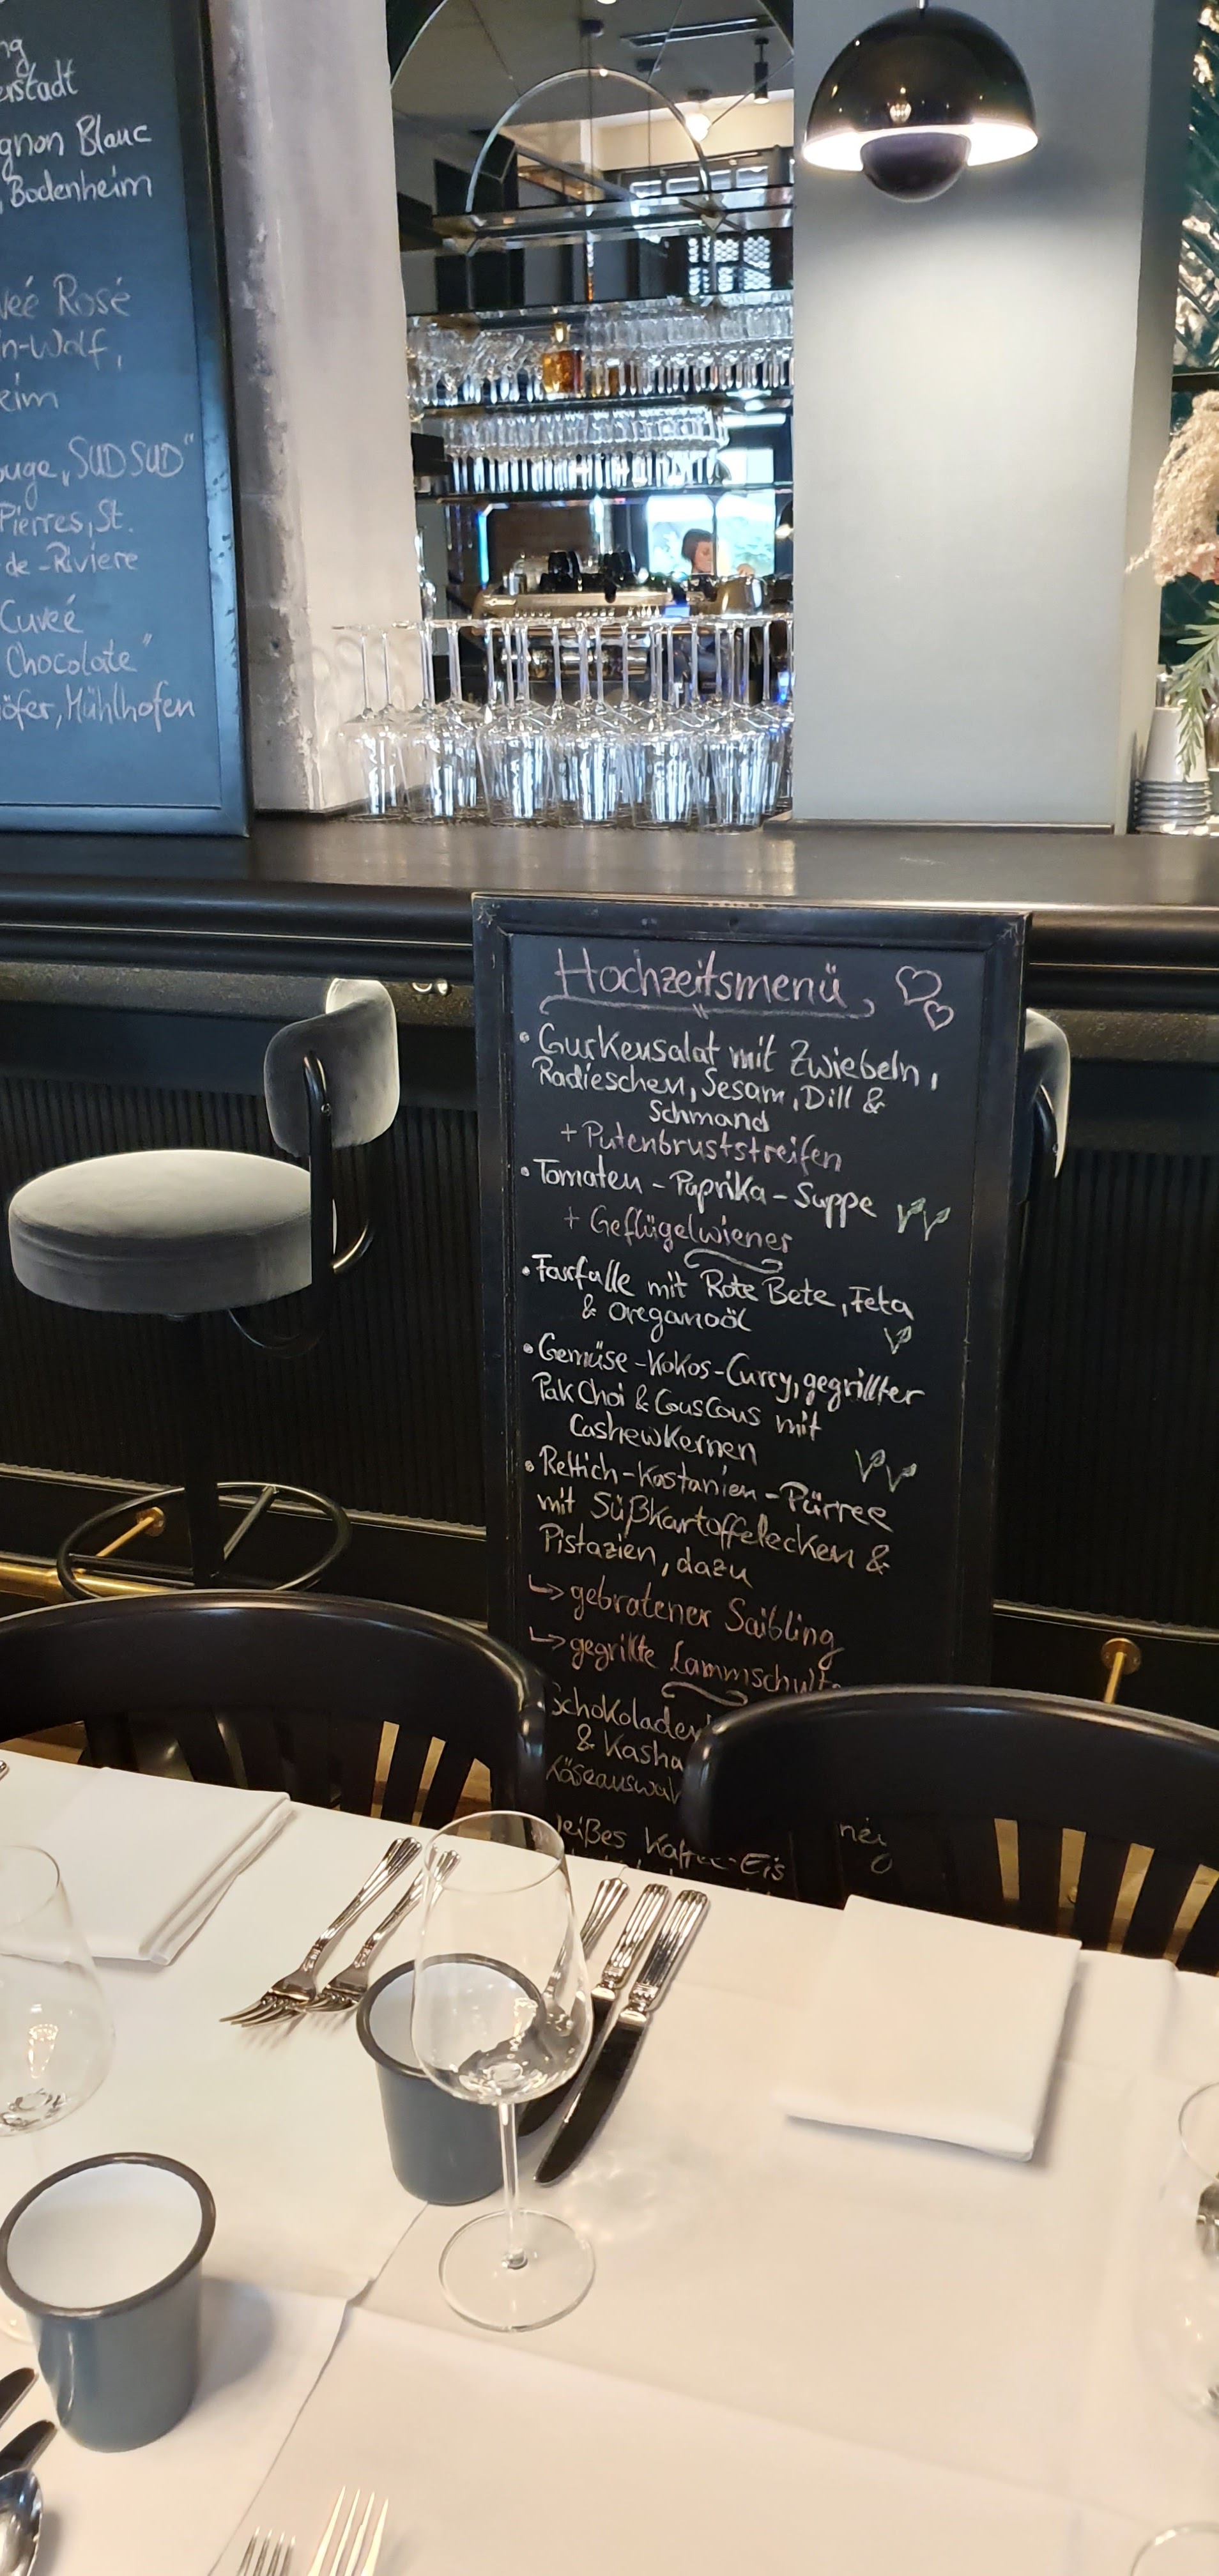 erstadt
Blanc
Bodenheim
Rosé
n-Wolf,
eim
"SUD SUD"
Pierres, St.
de-Riviere
Cuveé
Chocolate"
öfer, Mühlhofen
Hochzeitsmenü
• Gurkensalat mit Zwiebeln,
Radieschen, Sesam, Dill &
Schmand
+ Putenbruststreifen
• Tomaten-Paprika-Suppe VV
+ Geflügelwiener
• Farfalle mit Rote Bete, Feta
& Oreganoöl V
• Gemüse-Kokos-Curry, gegrillter
Pak Choi & CousCous mit
Cashewkernen VV
• Rettich-Kastanien-Pürree
mit Süßkartoffelecken &
Pistazien, dazu
↳ gebratener Saibling
↳ gegrillte Lammschulte
Schokoladen
& Kasha
Käseauswahl
eißes Kaffee-Eis